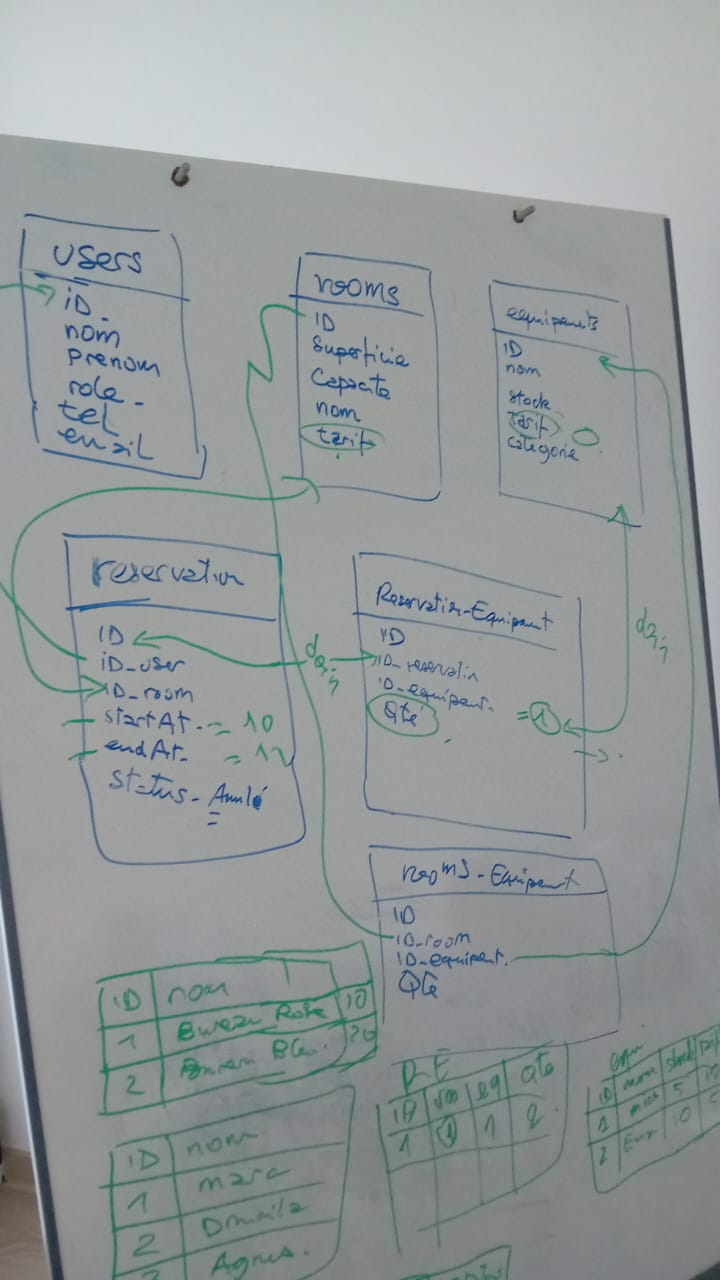 users
ID
nom
prenom
role
tel
email
rooms
ID
Superficie
Capacite
nom
tarif
equipments
ID
nom
stock
tarif
categorie
reservation
ID
ID_user
ID_room
startAt = 10
endAt = 12
status - Annulé
Reservation-Equipment
ID
ID_reservation
ID_equipment
Qté = 1
rooms-Equipment
ID
ID_room
ID_equipment
Qté
ID nom
1 Bureau 10
2 Bureau 20
ID nom
1 marc
2
Agnes.
RE
ID eq Qte
1 1 1 2
ID nom stock
1 5
2 10